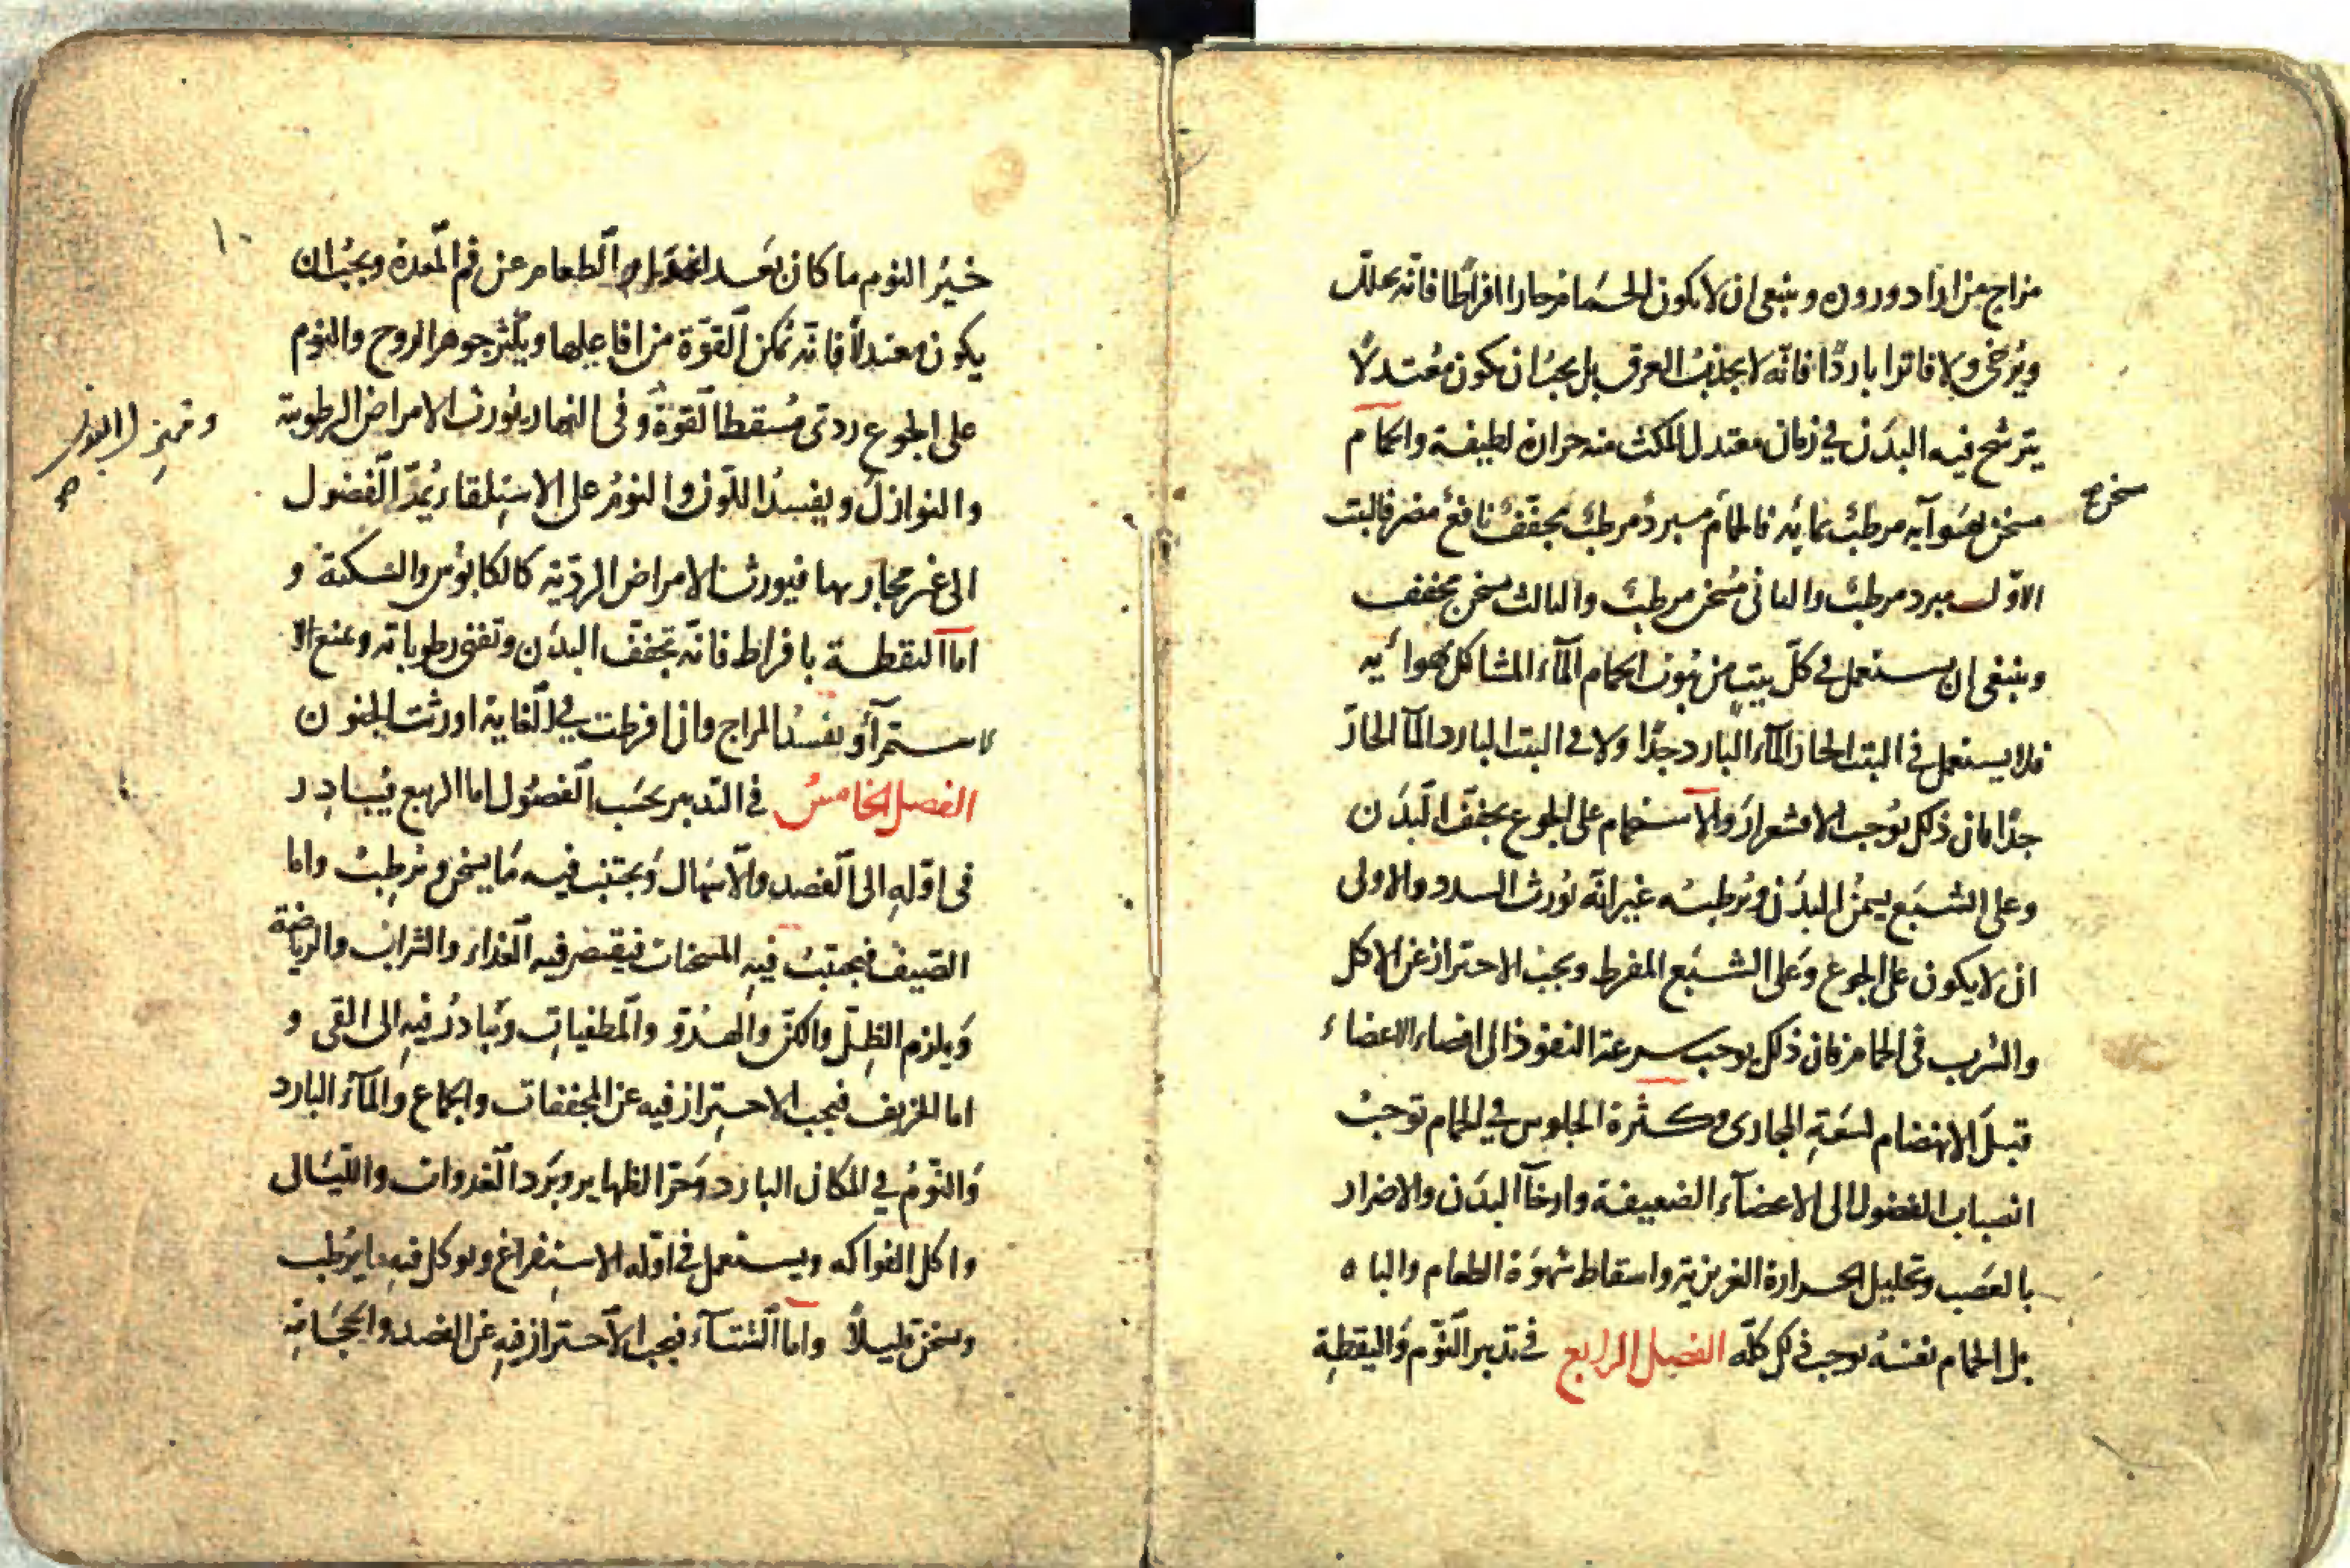 مزاج من اراد وروده وينبغى ان لا يكون الحمام حارا افراطا فانه يحلل
ويرخى ولا فاترا باردًا فانه لا يجذب العرق بل يجب ان يكون معتدلًا
يترشح فيه البدن في زمان معتدل المكث منه حرارة لطيفة والحمام
مسخن بهوآيه مرطب بمايه فالحمام مبرد مرطب مجفف نافع مضر فالبيت
الاول مبرد مرطب والثانى مسخن مرطب والثالث مسخن مجفف
وينبغى ان يستعمل في كل بيت من بيوت الحمام المآء المشاكل لهوائيه
فلا يستعمل فى البيت الحار المآء البارد جدًا ولا فى البيت البارد المآ الحار
جدًا فان ذلك يوجب الاقشعرار والاستحمام على الجوع يجفف البدن
وعلى الشبع يسمن البدن ويرطبه غير انه يورث السدد والاولى
ان لا يكون على الجوع وعلى الشبع المفرط ويجب الاحتراز عن الاكل
والشرب فى الحمام فان ذلك يوجب سرعة النفوذ الى اقصاء الاعضاء
قبل الانهضام لسعة المجارى وكثرة الجلوس في الحمام توجب
انصباب الفضول الى الاعضآء الضعيفة وارخآ البدن والاضرار
بالعصب وتحليل الحرارة الغريزية واسقاط شهوة الطعام والباه
بل الحمام نفسه يوجب ذلك كله الفصل الرابع فى تدبير النوم واليقظة
سخن صح
١٠
خير النوم ما كان بعد انحدار الطعام عن فم المعدة ويجب ان
يكون معتدلًا فانه يمكن القوة من افاعيلها ويكثر جوهر الروح والنوم
على الجوع ردى مسقط القوة وفى النهار يورث الامراض الرطوبية
والنوازل ويفسد اللون والنوم على الاستلقاء يمد الفضول
الى غير مجاريها فيورث الامراض الردية كالكابوس والسكتة و
اما اليقظة بافراط فانه تجفف البدن وتفنى رطوباته وتمنع الا
لاستمرآؤ يفسد المزاج وان افرطت في الغاية اورثت الجنون
الفصل الخامس فى التدبير بحسب الفصول اما الربيع فيبادر
فى اوله الى الفصد والاسهال ويجتنب فيه ما يسخن ويرطب واما
الصيف فيجتنب فيه المسخنات فيقتصر فيه الغذاء والشراب والرياضة
ويلزم الظل والكن والهدؤ والمطفيات ويبادر فيه الى القى و
اما الخريف فيجب الاحتراز فيه عن المجففات والجماع والمآء البارد
والنوم في المكان البارد وحر الظهاير وبرد الغدوات والليالى
واكل الفواكه ويستعمل فى اوله الاستفراغ ويوكل فيه ما يرطب
ويسخن قليلًا واما الشتآء فيجب الاحتراز فيه عن الفصد والحجامة